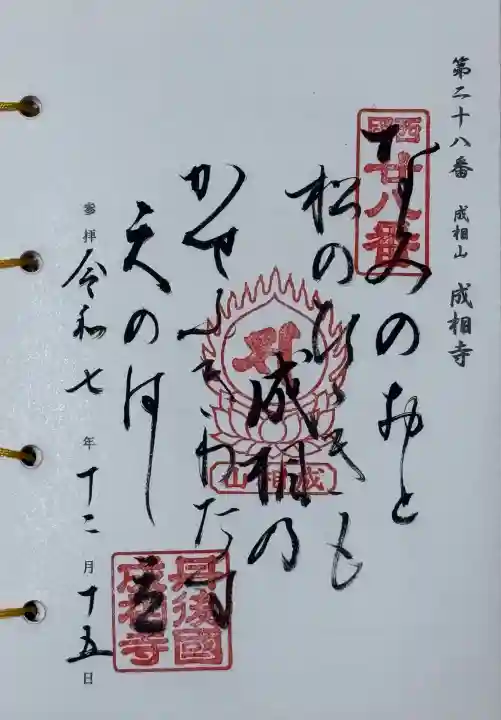 第二十八番 成相山 成相寺
西国
廿八番
なみのおと
松のひゞきも
成相の
かぜふきわたす
天のはし立
成相山
丹後國
成相寺
参拝 令和 七 年 十二 月 十五 日